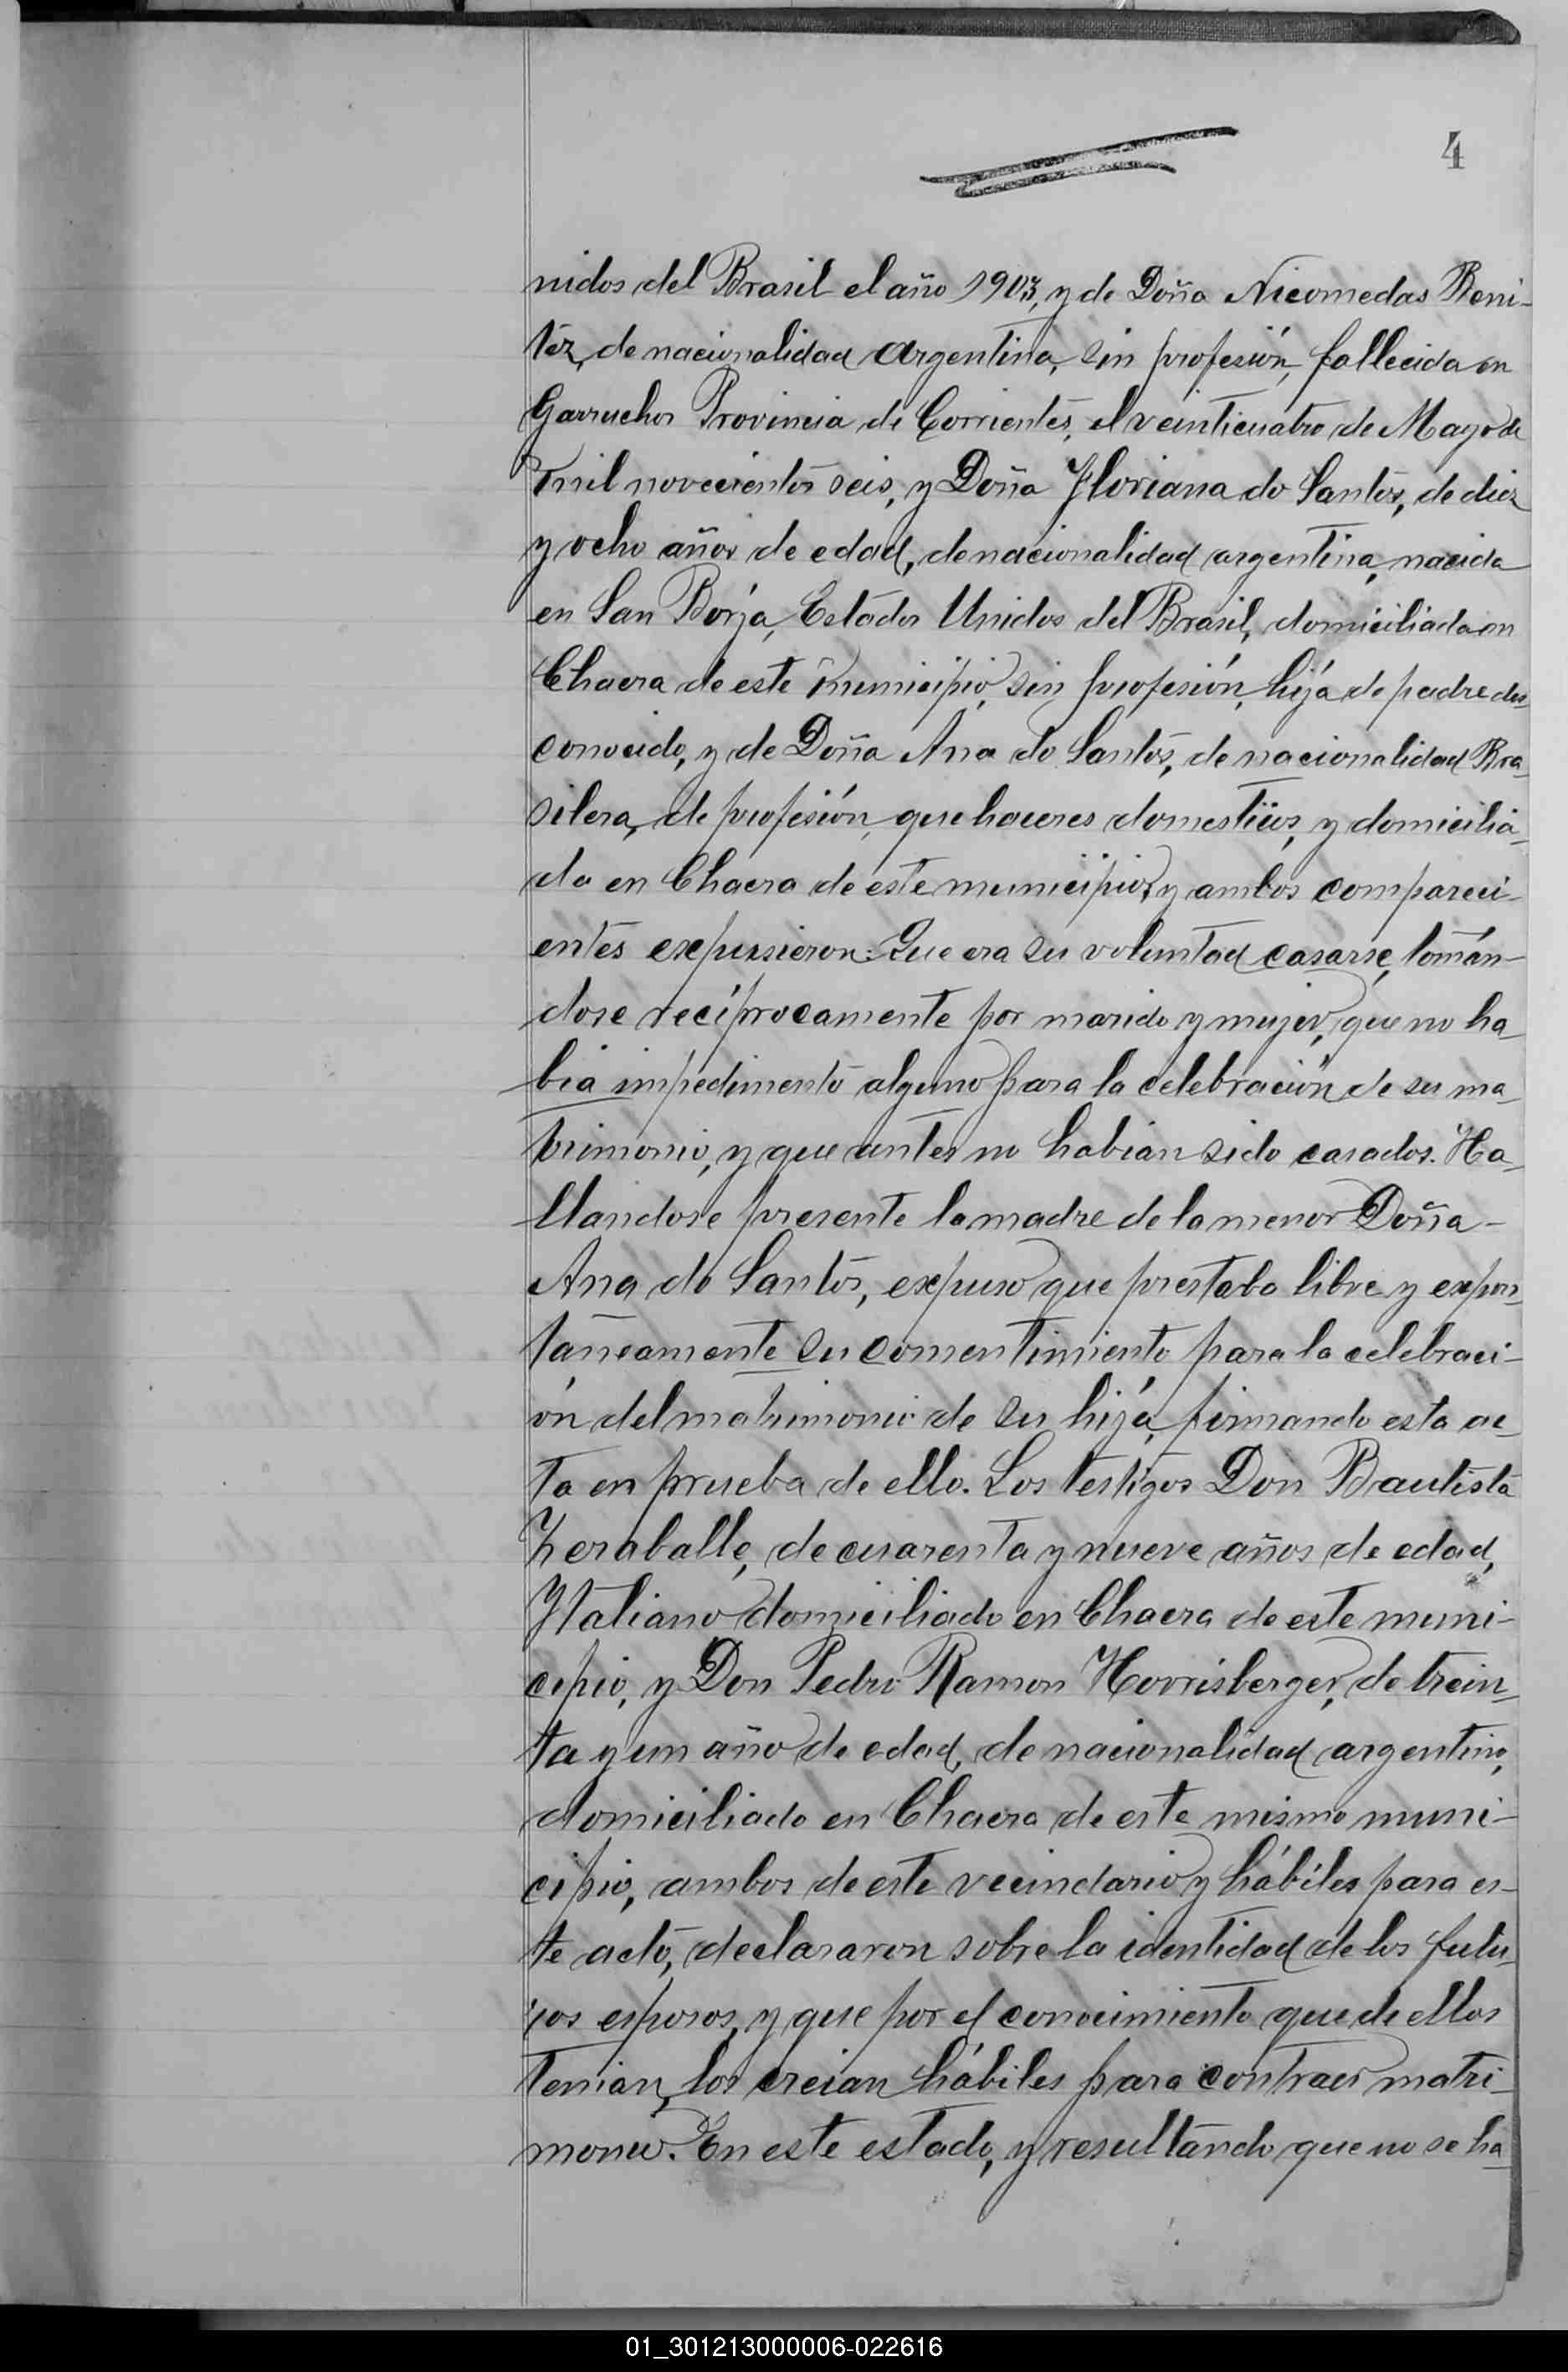 4
nidos del Brasil el año 1903, y de Doña Nicomedas Beni-
tez, de nacionalidad Argentina, sin profesión, fallecida en
Garruchos Provincia de Corrientes, el veinticuatro de Mayo de
mil novecientos seis, y Doña Floriana do Santos, de diez
y ocho años de edad, de nacionalidad argentina, nacida
en San Borja, Estados Unidos del Brasil, domiciliada en
Chacra de este municipio, sin profesión, hija de padre des
conocido, y de Doña Ana do Santos, de nacionalidad Bra
silera, de profesión, quehaceres domesticos, y domicilia
da en Chacra de este municipio, y ambos compareci-
entes expusieron: Que era su voluntad casarse, tomán-
dose recíprocamente por marido y mujer, que no ha
bia impedimento alguno para la celebración de su ma
trimonio, y que antes no habian sido casados. Ha
llandose presente la madre de la menor Doña -
Ana do Santos, expuso que prestaba libre y expon
táneamente su consentimiento para la celebraci-
ón del matrimonio de su hija, firmando esta ac
ta en prueba de ello. Los testigos Don Bautista
de cuarenta y nueve años de edad,
Italiano domiciliado en Chacra de este muni-
cipio, y Don Pedro Ramon Horrisberger, de trein
ta y un año de edad, de nacionalidad argentino,
domiciliado en Chacra de este mismo muni-
cipio, ambos de este vecindario y hábiles para es-
te acto, declararon sobre la identidad de los futu
ros esposos, y que por el conocimiento que de ellos
tenian, los creian hábiles para contraer matri-
monio. En este estado, y resultando que no se ha
01_301213000006-022616